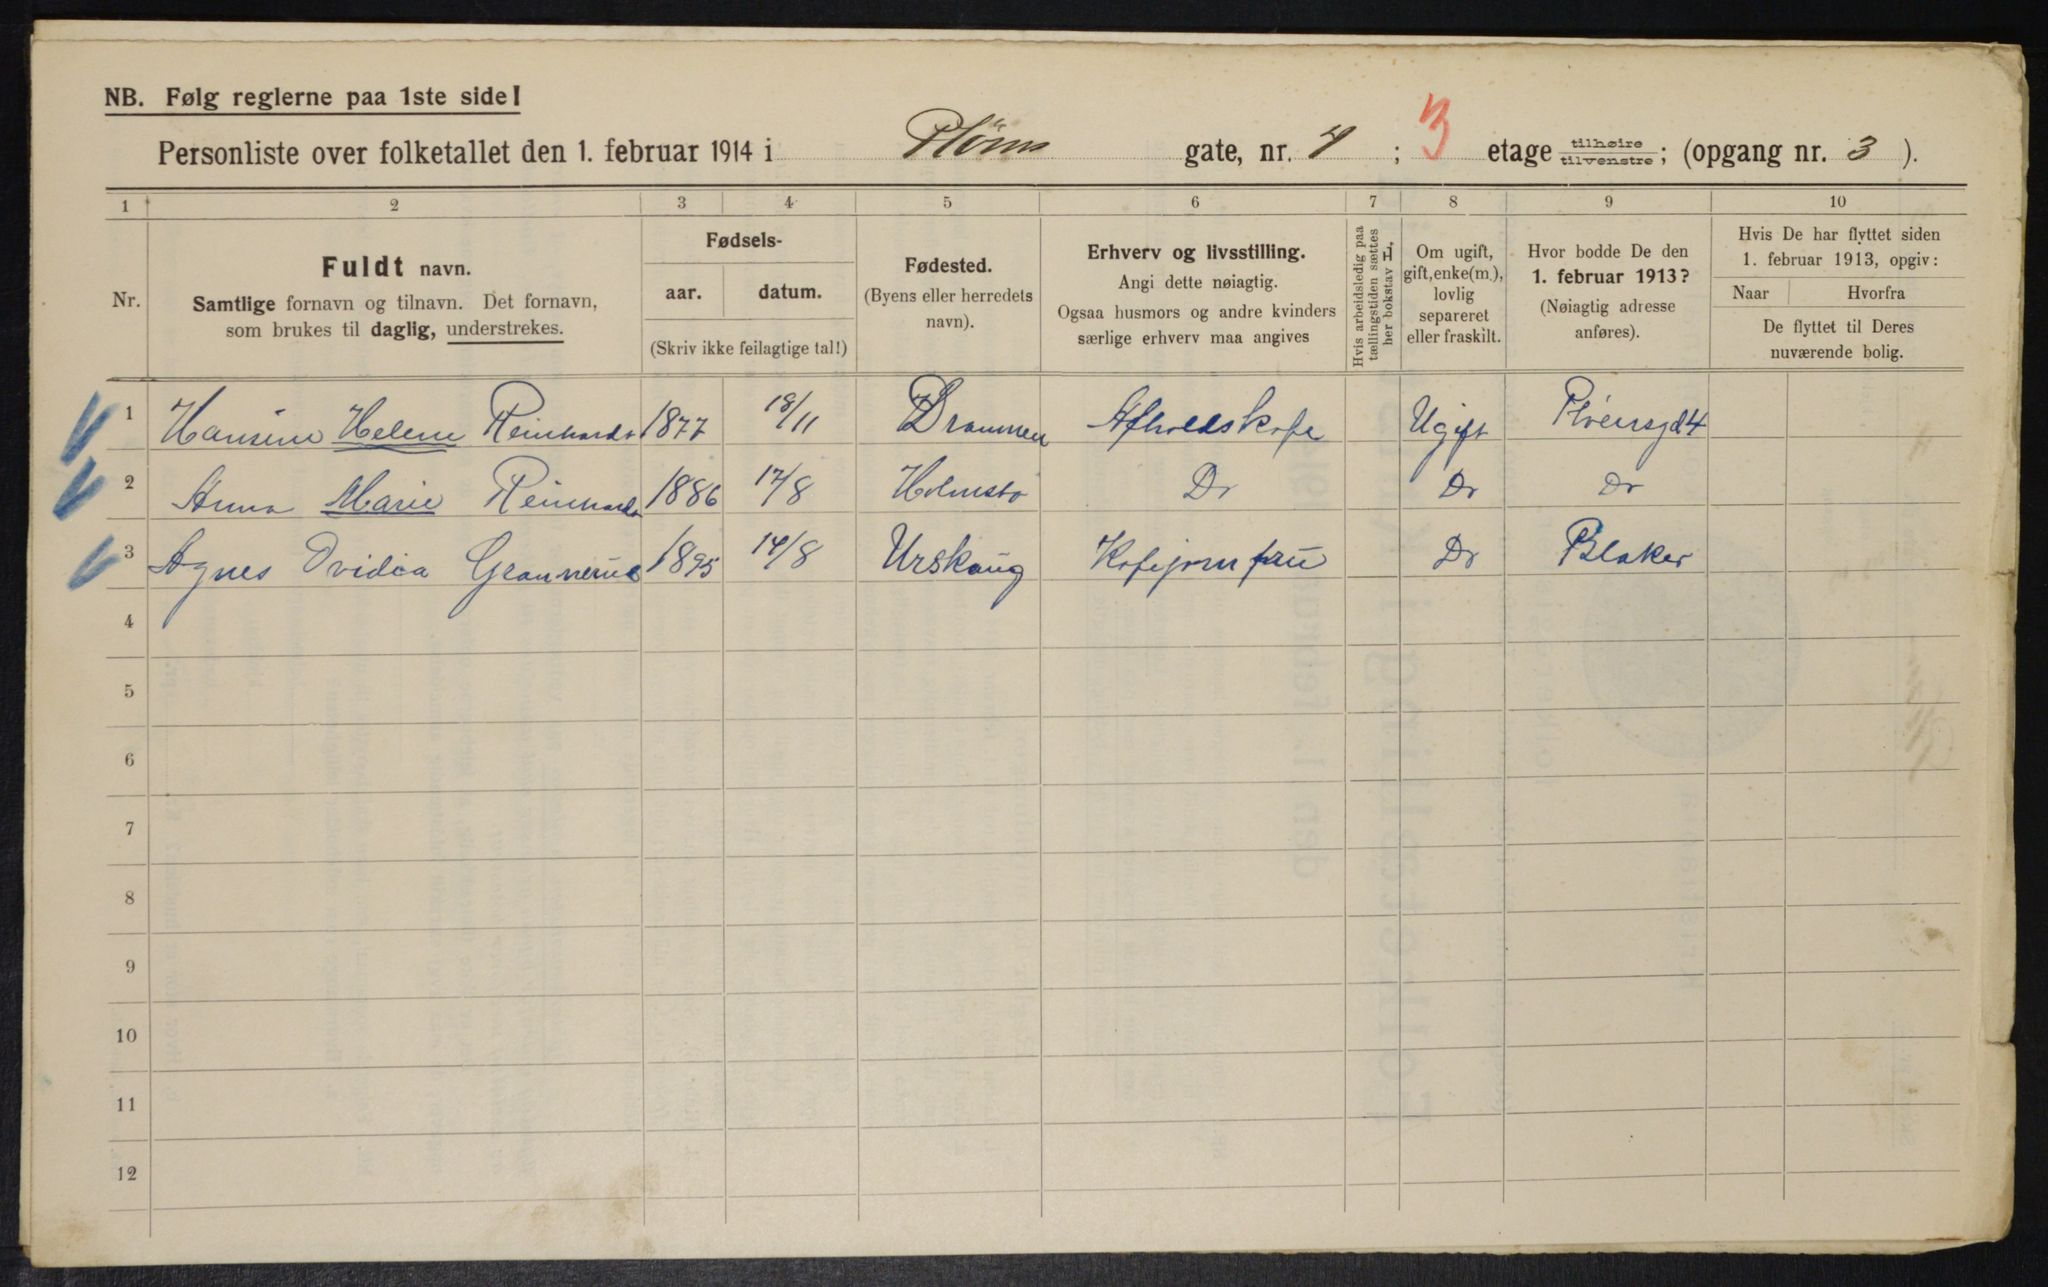 NB. Følg reglerne paa 1ste side!
Personliste over folketallet den 1. februar 1914 i Pløens gate, nr. 4 ; 3 etage tilhøire tilvenstre; (opgang nr. 3 ).
1 2 3 4 5 6 7 8 9 10
Nr.
Fuldt navn.
Samtlige fornavn og tilnavn. Det fornavn,
som brukes til daglig, understrekes.
Fødsels-
aar. datum.
(Skriv ikke feilagtige tal!)
Fødested.
(Byens eller herredets
navn).
Erhverv og livsstilling.
Angi dette nøiagtig.
Ogsaa husmors og andre kvinders
særlige erhverv maa angives
Hvis arbeidsledig paa
tællingstiden sættes
her bokstav L,
Om ugift,
gift, enke(m.),
lovlig
separeret
eller fraskilt.
Hvor bodde De den
1. februar 1913?
(Nøiagtig adresse
anføres).
Hvis De har flyttet siden
1. februar 1913, opgiv:
Naar Hvorfra
De flyttet til Deres
nuværende bolig.
1 Hansine Helene Reinhardt 1877 18/11 Drammen Afholdskafe Ugift Pløensgd 4
2 Anna Marie Reinhardt 1886 17/8 Holmsbo Do Do Do
3 Agnes Ovidia Grannerud 1895 14/8 Urskaug Kafejomfru Do Blaker
4
5
6
7
8
9
10
11
12